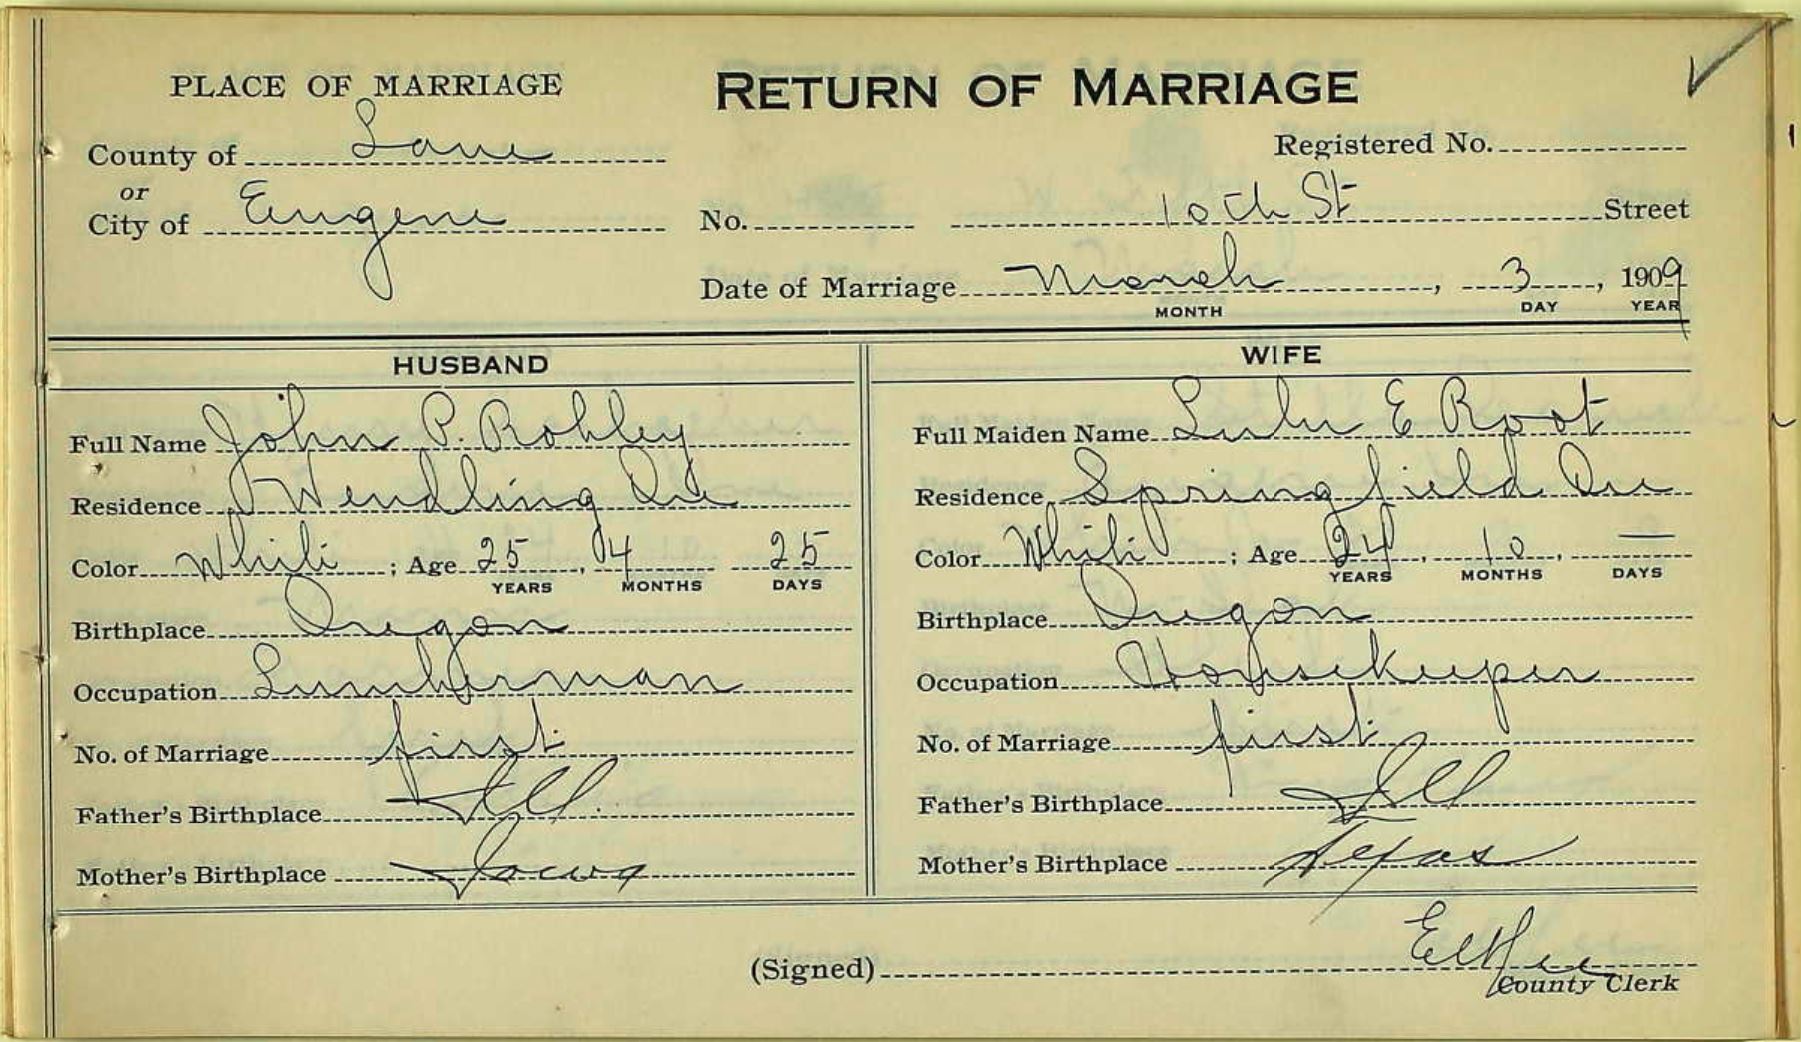 PLACE OF MARRIAGE
RETURN OF MARRIAGE
County of Lane
Registered No.
or
City of Eugene
No. 10th St Street
Date of Marriage March, 3, 1909
MONTH DAY YEAR
HUSBAND
Full Name John P. Robley
Residence Wendling Ore
Color White; Age 25, 4 25
YEARS MONTHS DAYS
Birthplace Oregon
Occupation Lumberman
No. of Marriage first
Father's Birthplace Ill.
Mother's Birthplace Iowa
WIFE
Full Maiden Name Lulu E Root
Residence Springfield Ore
Color White; Age 24, 10, —
YEARS MONTHS DAYS
Birthplace Oregon
Occupation Housekeeper
No. of Marriage first
Father's Birthplace Ill
Mother's Birthplace Texas
(Signed)
County Clerk